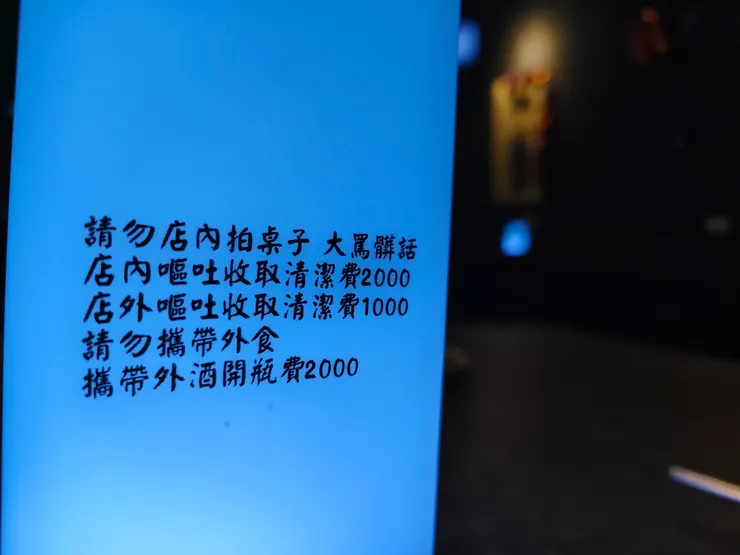 請勿店內拍桌子 大罵髒話
店內嘔吐收取清潔費2000
店外嘔吐收取清潔費1000
請勿攜帶外食
攜帶外酒開瓶費2000